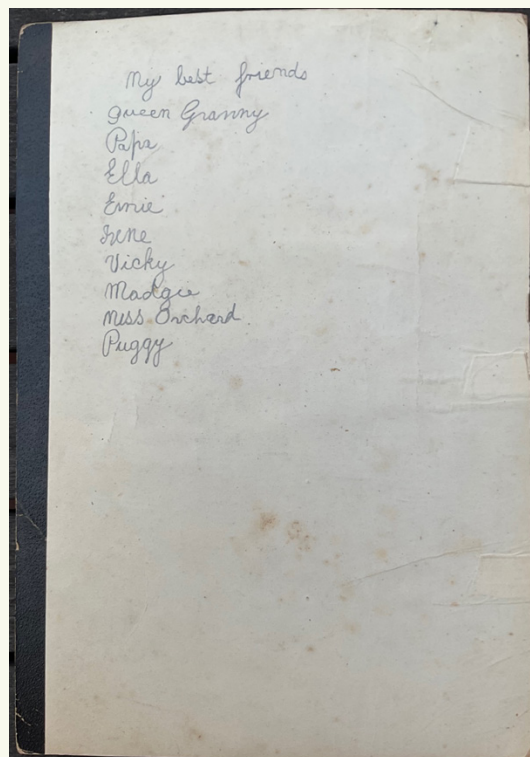 My best friends
Queen Granny
Papa
Ella
Ernie
Irene
Vicky
Madgie
Miss Orchard
Puggy